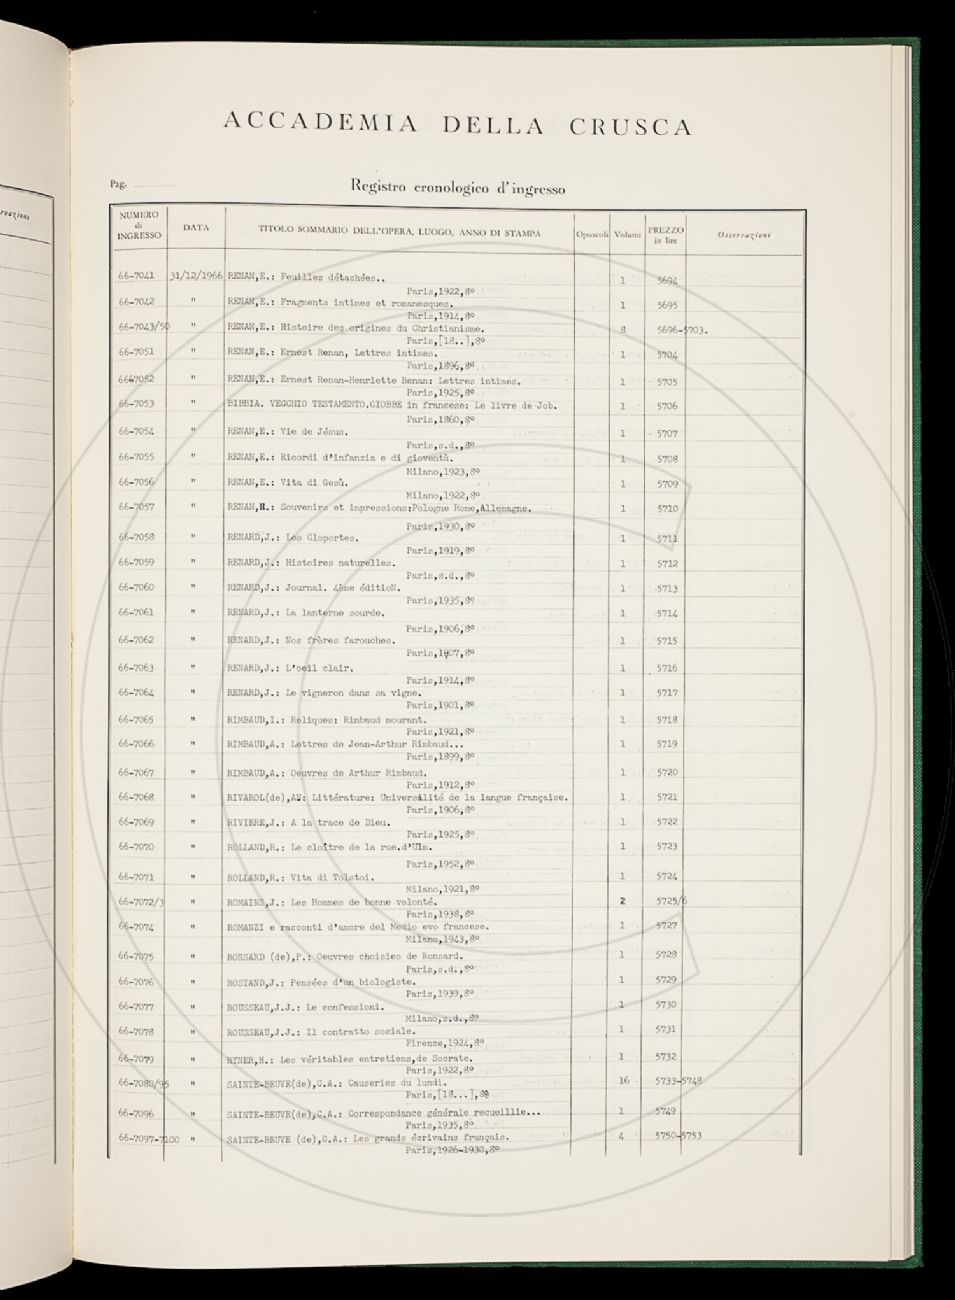 rvazioni
ACCADEMIA DELLA CRUSCA
Pag.
Registro cronologico d'ingresso
NUMERO di INGRESSO DATA TITOLO SOMMARIO DELL'OPERA, LUOGO, ANNO DI STAMPA Opuscoli Volumi PREZZO in lire Osservazioni
66-7041 31/12/1966 RENAN,E.: Feuilles détachées.. 1 5694
Paris,1922,8º
66-7042 " RENAN,E.: Fragments intimes et romanesques. 1 5695
Paris,1914,8º
66-7043/50 " RENAN,E.: Histoire des origines du Christianisme. 8 5696-5703.
Paris,[18..],8º
66-7051 " RENAN,E.: Ernest Renan, Lettres intimes. 1 5704
Paris,1896,8º
6667052 " RENAN,E.: Ernest Renan-Henriette Renan: Lettres intimes. 1 5705
Paris,1925,8º
66-7053 " BIBBIA. VECCHIO TESTAMENTO.GIOBBE in francese: Le livre de Job. 1 5706
Paris,1860,8º
66-7054 " RENAN,E.: Vie de Jésus. 1 5707
Paris,s.d.,8º
66-7055 " RENAN,E.: Ricordi d'infanzia e di gioventù. 1 5708
Milano,1923,8º
66-7056 " RENAN,E.: Vita di Gesù. 1 5709
Milano,1922,8º
66-7057 " RENAN,H.: Souvenirs et impressions:Pologne Rome,Allemagne. 1 5710
Paris,1930,8º
66-7058 " RENARD,J.: Les Cloportes. 1 5711
Paris,1919,8º
66-7059 " RENARD,J.: Histoires naturelles. 1 5712
Paris,s.d.,8º
66-7060 " RENARD,J.: Journal. 4ème éditioN. 1 5713
Paris,1935,8º
66-7061 " RENARD,J.: La lanterne sourde. 1 5714
Paris,1906,8º
66-7062 " RENARD,J.: Nos frères farouches. 1 5715
Paris,1907,8º
66-7063 " RENARD,J.: L'oeil clair. 1 5716
Paris,1914,8º
66-7064 " RENARD,J.: Le vigneron dans sa vigne. 1 5717
Paris,1901,8º
66-7065 " RIMBAUD,I.: Reliques: Rimbaud mourant. 1 5718
Paris,1921,8º
66-7066 " RIMBAUD,A.: Lettres de Jean-Arthur Rimbaud... 1 5719
Paris,1899,8º
66-7067 " RIMBAUD,A.: Oeuvres de Arthur Rimbaud. 1 5720
Paris,1912,8º
66-7068 " RIVAROL(de),A.: Littérature: Universilité de la langue française. 1 5721
Paris,1906,8º
66-7069 " RIVIERE,J.: A la trace de Dieu. 1 5722
Paris,1925,8º
66-7070 " ROLLAND,R.: Le cloître de la rue.d'Ulm. 1 5723
Paris,1952,8º
66-7071 " ROLLAND,R.: Vita di Tolstoi. 1 5724
Milano,1921,8º
66-7072/3 " ROMAINS,J.: Les Hommes de bonne volonté. 2 5725/6
Paris,1938,8º
66-7074 " ROMANZI e racconti d'amore del Medio evo francese. 1 5727
Milano,1943,8º
66-7075 " RONSARD (de),P.: Oeuvres choisies de Ronsard. 1 5728
Paris,s.d.,8º
66-7076 " ROSTAND,J.: Pensées d'un biologiste. 1 5729
Paris,1939,8º
66-7077 " ROUSSEAU,J.J.: Le confessioni. 1 5730
Milano,s.d.,8º
66-7078 " ROUSSEAU,J.J.: Il contratto sociale. 1 5731
Firenze,1924,8º
66-7079 " RYNER,H.: Les véritables entretiens,de Socrate. 1 5732
Paris,1922,8º
66-7080/95 " SAINTE-BEUVE(de),C.A.: Causeries du lundi. 16 5733-5748
Paris,[18...],8º
66-7096 " SAINTE-BEUVE(de),C.A.: Correspondance générale recueillie... 1 5749
Paris,1935,8º
66-7097-7100 " SAINTE-BEUVE (de),C.A.: Les grands écrivains français. 4 5750-5753
Paris,1926-1930,8º